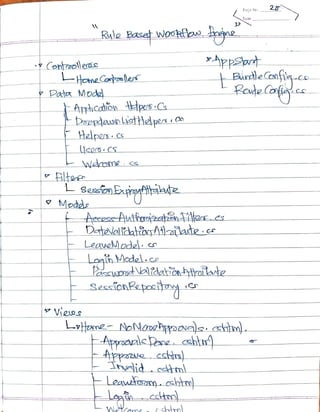 Page No. 28
Date
"Rule Based Workflow Engine"
Controllers
HomeController
AppStart
BundleConfig.cs
RouteConfig.cs
Data Model
Application Helper.Cs
DropdownListHelper.cs
Helper.cs
Users.cs
Welcome.cs
Filters
SessionExpiryAttribute
Models
AccessAuthorizationFilter.cs
DateValidationAttribute.cs
LeaveModel.cs
LoginModel.cs
PasswordValidationAttribute
SessionRepository.cs
Views
Home - NoMoreApprovals.cshtml
ApprovalsDone.cshtml
Approve.cshtml
Invalid.cshtml
Leaveform.cshtml
Login.cshtml
Welcome.cshtml